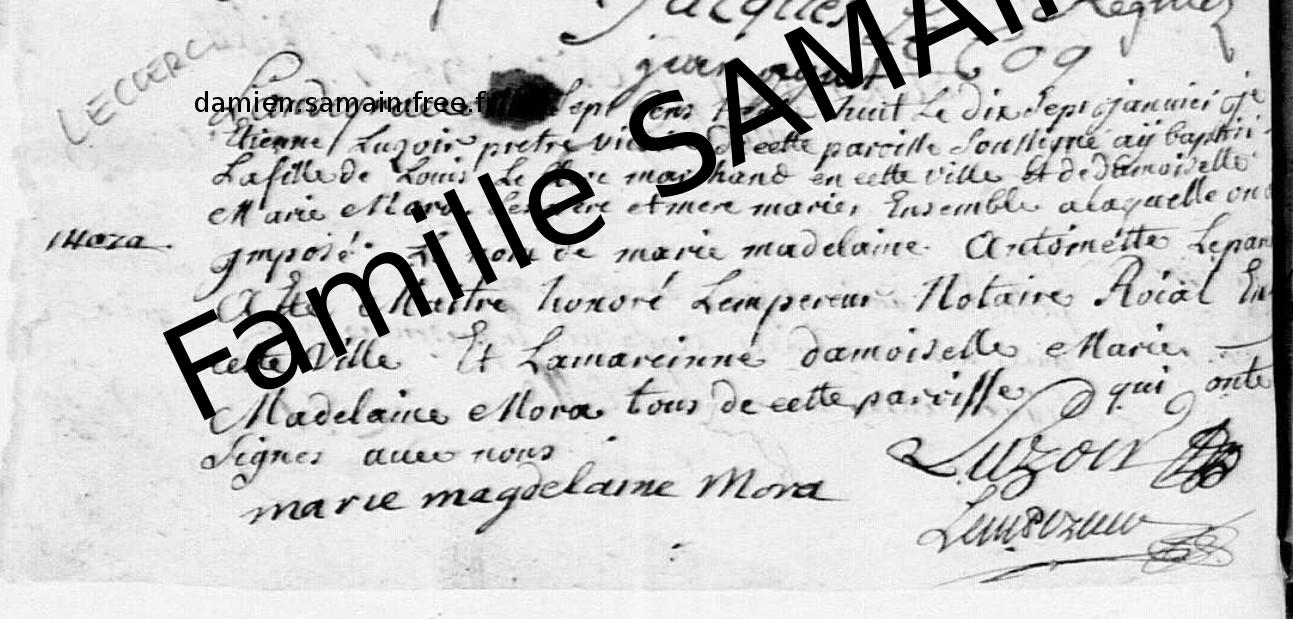 Jacques Regnier
LECLERCQ
Famille SAMAIN
damien.samain.free.fr
sept cens huit Le dix sept janvier je
Etienne Luzoir pretre de cette paroisse soussigné aÿ baptisé
La fille de Louis Le marchand en cette ville et de damoiselle
Marie Mora Ses pere et mere mariez Ensemble a laquelle on a
jmposé Le nom de marie madelaine Antoinette Le par
Maitre honoré Lempereur Notaire Roial En
cette Ville Et La mareinne damoiselle Marie
14024
Madelaine Mora tous de cette paroisse qui onte
Signes avec nous
Luzoir
marie magdelaine Mora
Lempereur